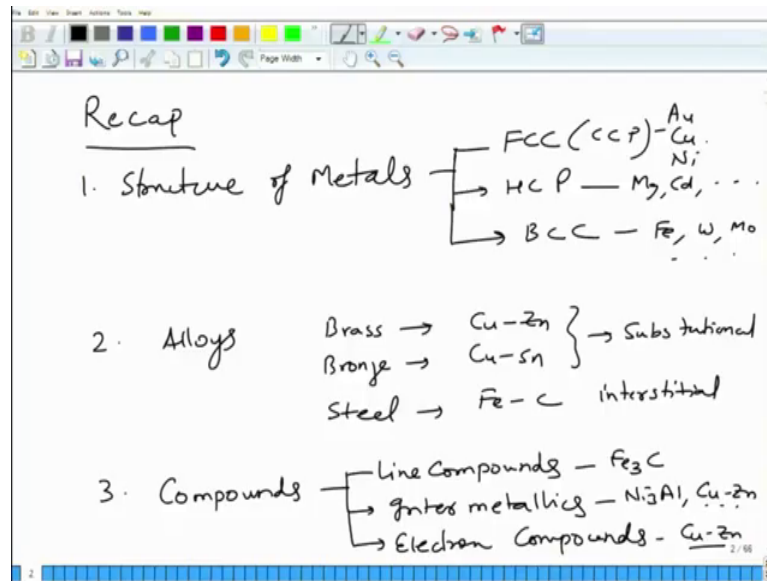 File Edit View Insert Actions Tools Help
B I
Page Width
Recap
1. Structure of Metals
FCC (CCP) - Au
Cu.
Ni
HCP — Mg, Cd, ...
BCC — Fe, W, Mo
. . .
2. Alloys
Brass → Cu-Zn
Bronze → Cu-Sn
→ Substutional
Steel → Fe-C interstitial
3. Compounds
Line Compounds — Fe3C
→ Inter metallics — Ni3Al, Cu-Zn
→ Electron Compounds - Cu-Zn
2/66
2